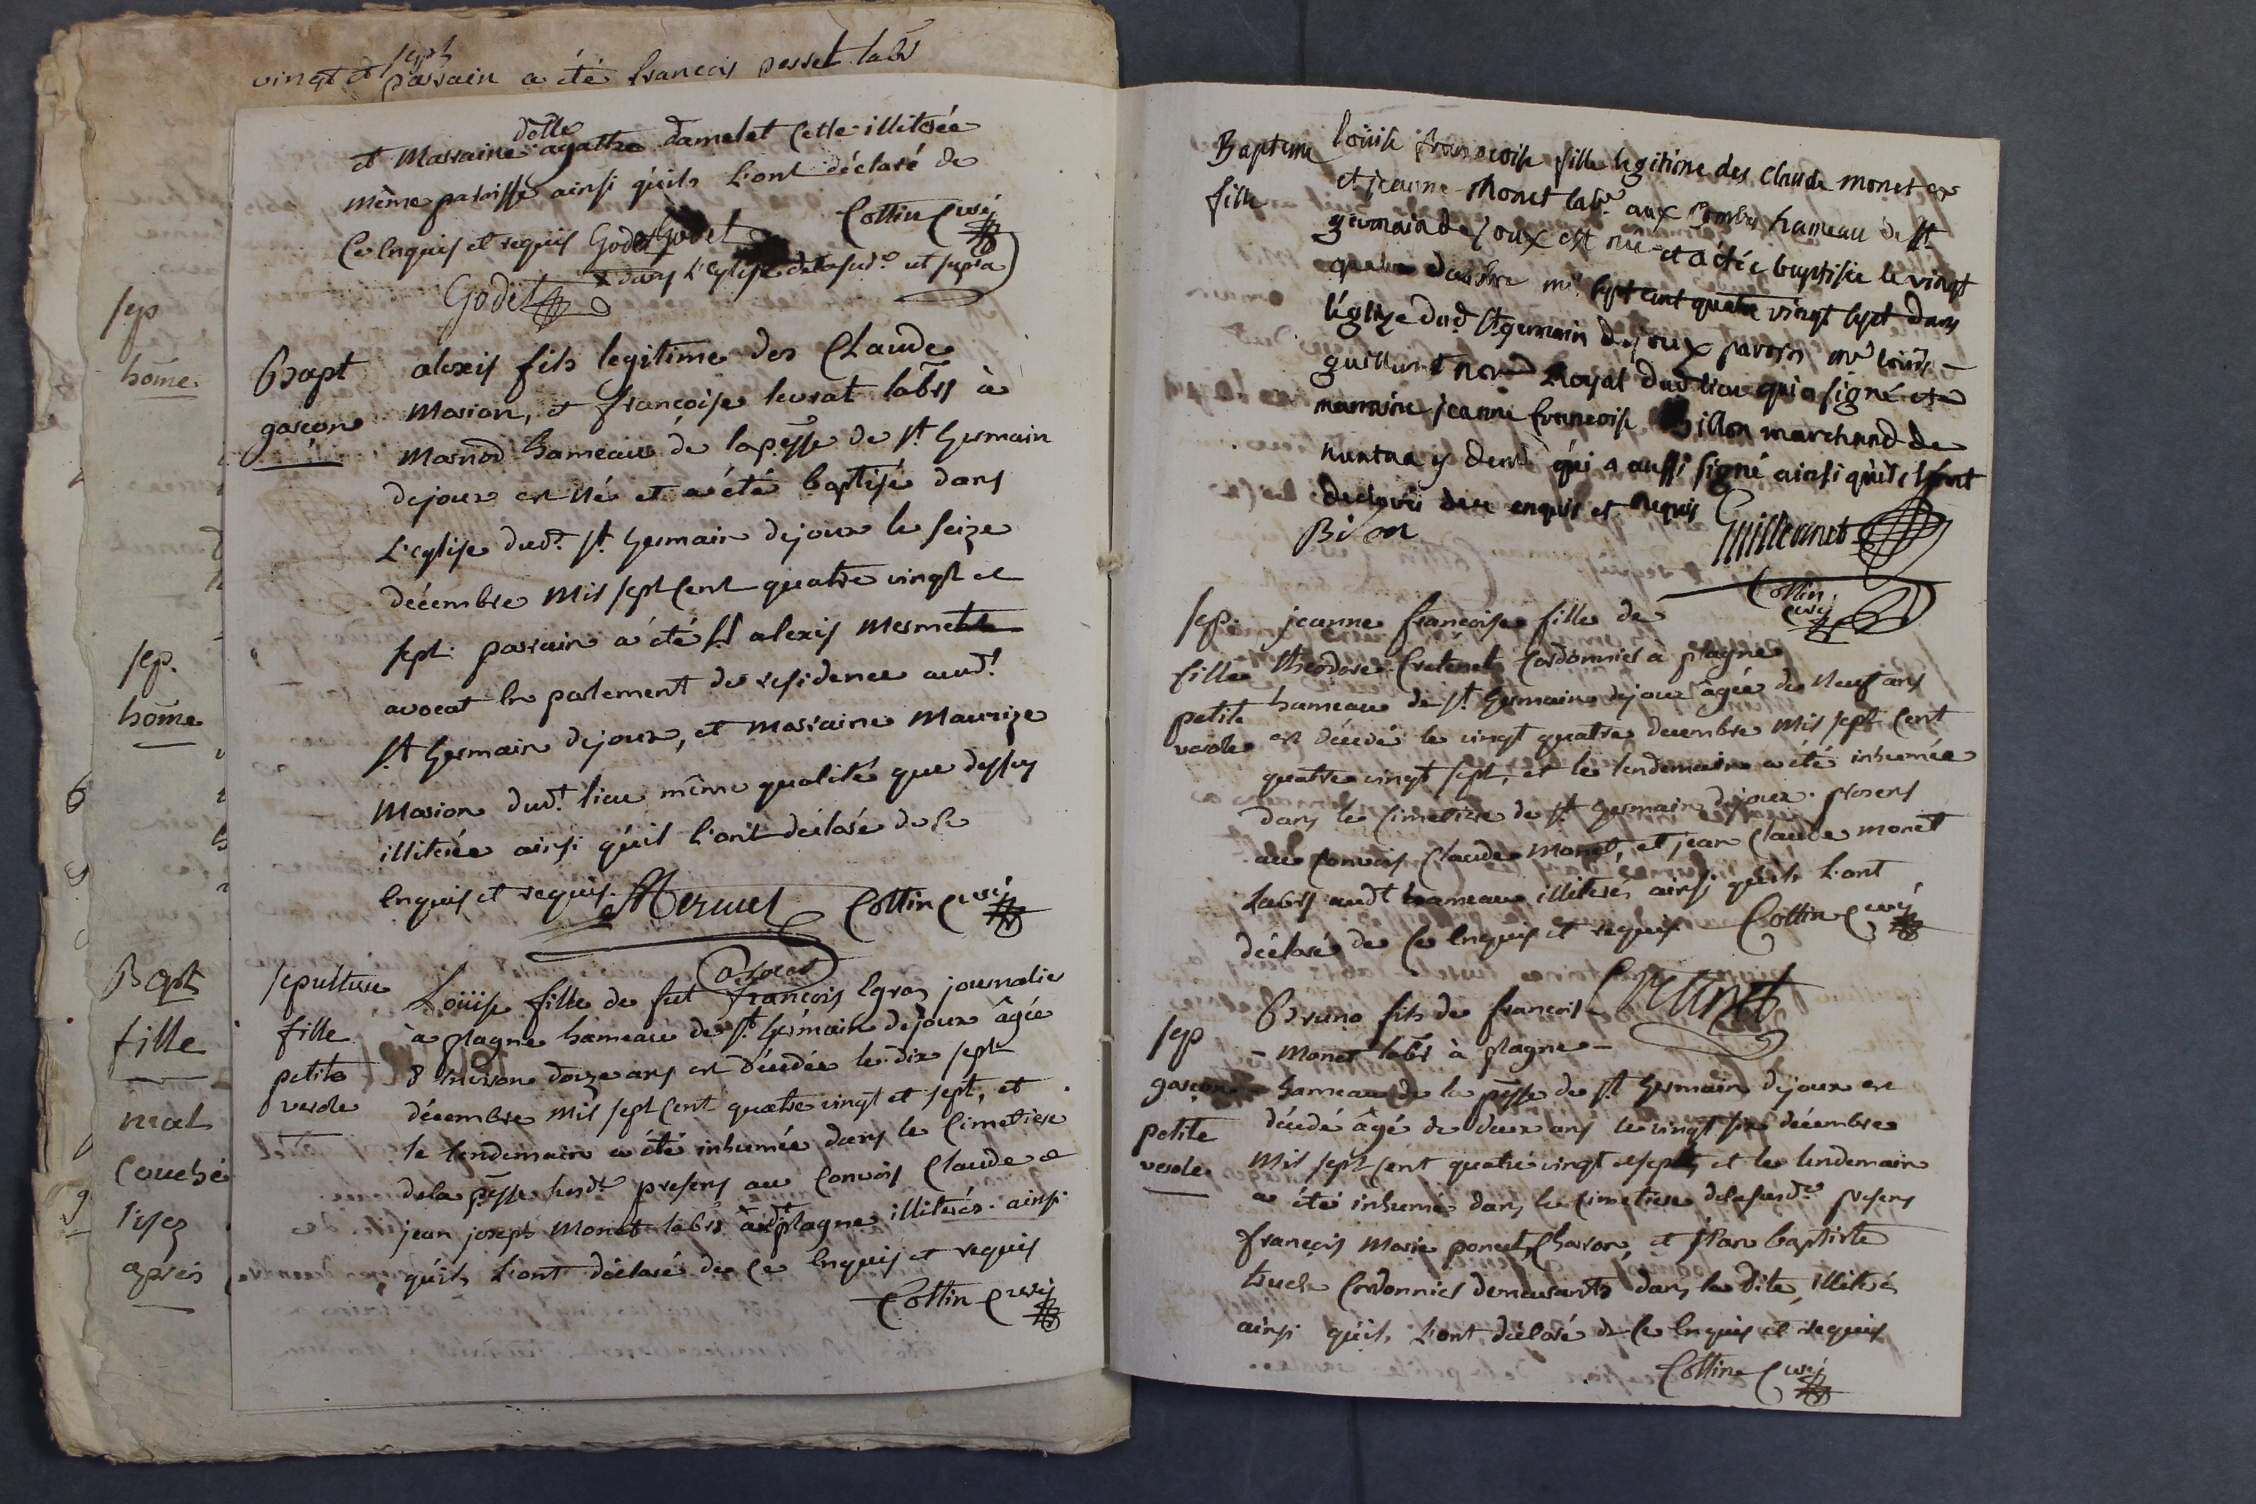 vingt et sept
parrain a été francois perret labr
sep
hōme
sep.
hōme
Bapt
fille
mal
couché
lisez
après
dolle
et Marraine agathe damelet cette illiterée
même paroisse ainsi qu'ils l'ont déclaré de
Ce Enquis et requis Godet Godet Cottin Curé
dans l'Eglise de la susd.e ut supra
Godet
Bapt
garçon
alexis fils legitime des Claude
Marion, et francoise levrat labrs à
Marnod hameau de la pẽsse de St Germain
dejoux est né et a été baptisé dans
L'Eglise dud.t St Germain dejoux le seize
décembre mil sept Cent quatre vingt et
sept. parrain a été Sr alexis Mermet
avocat En parlement de residence aud.t
St Germain dejoux, et Marraine Maurize
Marion dud.t lieu même qualité que dessus
illiterée ainsi qu'il l'ont déclaré de Ce
Enquis et requis. Mermet Cottin Curé
avocat
sepulture
fille
petite
verole
Loüise fille de fut françois Egraz journalier
à plagne hameau de St Germain dejoux âgée
d'Environ douze ans est décédée le dix sept
décembre mil sept Cent quatre vingt et sept, et
le lendemain a été inhumée dans le Cimetiere
dela pẽsse susd.t presens au Convois Claude et
jean joseph Monet labrs aud.t plagne illiterés ainsi
qu'ils L'ont déclaré de Ce Enquis et requis
Cottin Curé
Bapteme
fille
Loüise francoise fille legitime des Claude monet
et jeanne Monet labr. aux Combes hameau de St
germain de joux est née et a été baptisée le vingt
quatre decembre mil sept cent quatre vingt sept dans
l'église dud St germain dejoux parrain mr louis
guillermet nore Royal dud lieu qui a signé et
marraine jeanne francoise Billon marchand de
nantua y demt qui a aussi signé ainsi qu'ils l'ont
declaré de ce enquis et requis
Billon Guillermet
Cottin
curé
sep.
fille
petite
verole
jeanne françoise fille de
theodore Cretenet Cordonnier à plagne
hameau de St Germain dejoux âgée de neuf ans
est décédé le vingt quatre decembre mil sept Cent
quatre vingt sept, et le lendemain a été inhumée
dans le Cimetiere de St Germain dejoux. presens
au Convois Claude Monet, et jean Claude Monet
Labrs aud.t hameau illiterés ainsi qu'ils L'ont
déclaré de Ce Enquis et requis Cottin Curé
Cretenet
sep
garçon
petite
verole
Bruno fils de francois
Monet labr à plagne
hameau de la pẽsse de St Germain dejoux est
décédé âgé de deux ans le vingt six décembre
Mil sept Cent quatre vingt et sept, et le lendemain
a été inhumé dans le Cimetiere de la susd.e presens
françois Marie poncet, Charon, et jean baptiste
Cordonnier demeurants dans la dite, illiterés
ainsi qu'ils L'ont déclaré de Ce Enquis et requis
Cottin Curé